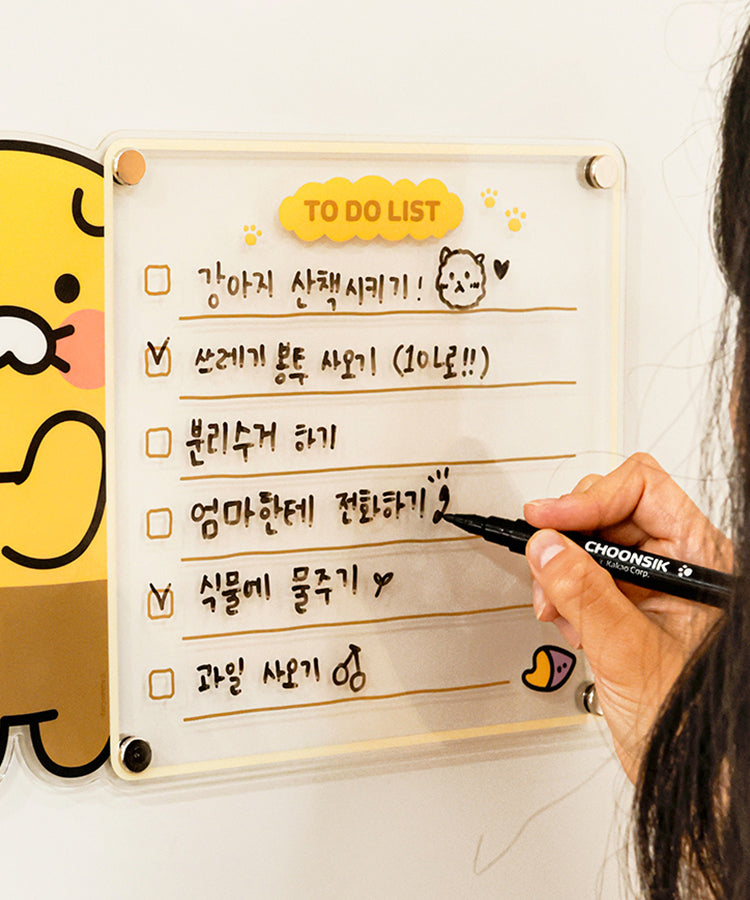 TO DO LIST
강아지 산책시키기!
쓰레기 봉투 사오기 (10L로!!)
분리수거 하기
엄마한테 전화하기
식물에 물주기
과일 사오기
CHOONSIK
Kakao Corp.